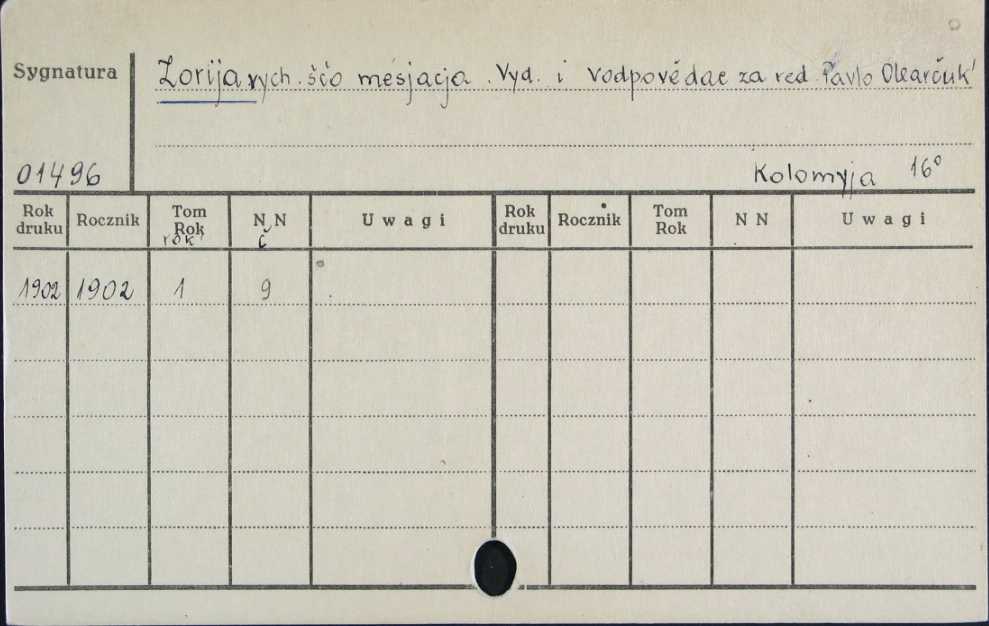 Sygnatura
Zorija. vych. ščo mesjacja. Vyd. i vodpovědae za red. Pavlo Olearčuk'
01496
Kolomyja 16°
Rok druku Rocznik Tom Rok N N Uwagi Rok druku Rocznik Tom Rok N N Uwagi
rok' č
1902 1902 1 9